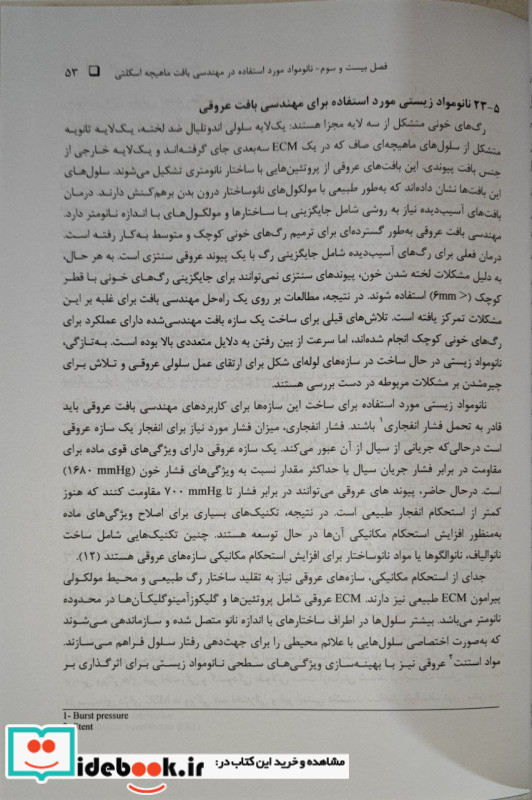 فصل بیست و سوم- نانومواد مورد استفاده در مهندسی بافت ماهیچه اسکلتی ❑ ۵۳
۲۳-۵ نانومواد زیستی مورد استفاده برای مهندسی بافت عروقی
رگ‌های خونی متشکل از سه لایه مجزا هستند: یک‌لایه سلولی اندوتلیال ضد لخته، یک‌لایه ثانویه
متشکل از سلول‌های ماهیچه‌ای صاف که در یک ECM سه‌بعدی جای گرفته‌اند و یک‌لایه خارجی از
جنس بافت پیوندی. این بافت‌های عروقی از پروتئین‌هایی با ساختار نانومتری تشکیل می‌شوند. سلول‌های
این بافت‌ها نشان داده‌اند که به‌طور طبیعی با مولکول‌های نانوساختار درون بدن برهم‌کنش دارند. درمان
بافت‌های آسیب‌دیده نیاز به روشی شامل جایگزینی با ساختارها و مولکول‌های با اندازه نانومتر دارد.
مهندسی بافت عروقی به‌طور گسترده‌ای برای ترمیم رگ‌های خونی کوچک و متوسط به‌کار رفته است.
درمان فعلی برای رگ‌های آسیب‌دیده شامل جایگزینی رگ با یک پیوند عروقی سنتزی است. به هر حال،
به دلیل مشکلات لخته شدن خون، پیوندهای سنتزی نمی‌توانند برای جایگزینی رگ‌های خونی با قطر
کوچک (< ۶mm) استفاده شوند. در نتیجه، مطالعات بر روی یک راه‌حل مهندسی بافت برای غلبه بر این
مشکلات تمرکز یافته است. تلاش‌های قبلی برای ساخت یک سازه بافت مهندسی‌شده دارای عملکرد برای
رگ‌های خونی کوچک انجام شده‌اند، اما سرعت از بین رفتن به دلایل متعددی بالا بوده است. به‌تازگی،
نانومواد زیستی در حال ساخت در سازه‌های لوله‌ای شکل برای ارتقای عمل سلولی عروقی و تلاش برای
چیره‌شدن بر مشکلات مربوطه در دست بررسی هستند.
نانومواد زیستی مورد استفاده برای ساخت این سازه‌ها برای کاربردهای مهندسی بافت عروقی باید
قادر به تحمل فشار انفجاری۱ باشند. فشار انفجاری، میزان فشار مورد نیاز برای انفجار یک سازه عروقی
است درحالی‌که جریانی از سیال از آن عبور می‌کند. یک سازه عروقی دارای ویژگی‌های قوی ماده برای
مقاومت در برابر فشار جریان سیال با حداکثر مقدار نسبت به ویژگی‌های فشار خون (۱۶۸۰ mmHg)
است. درحال حاضر، پیوند های عروقی می‌توانند در برابر فشار تا ۷۰۰ mmHg مقاومت کنند که هنوز
کمتر از استحکام انفجار طبیعی است. در نتیجه، تکنیک‌های بسیاری برای اصلاح ویژگی‌های ماده
به‌منظور افزایش استحکام مکانیکی آن‌ها در حال توسعه هستند. چنین تکنیک‌هایی شامل ساخت
نانوالیاف، نانوالگوها یا مواد نانوساختار برای افزایش استحکام مکانیکی سازه‌های عروقی هستند (۱۲).
جدای از استحکام مکانیکی، سازه‌های عروقی نیاز به تقلید ساختار رگ طبیعی و محیط مولکولی
پیرامون ECM طبیعی نیز دارند. ECM عروقی شامل پروتئین‌ها و گلیکوزآمینوگلیکـآن‌ها در محدوده
نانومتر می‌باشد. بیشتر سلول‌ها در اطراف ساختارهای با اندازه نانو متصل شده و سازماندهی می‌شوند
که به‌صورت اختصاصی سلول‌هایی با علائم محیطی را برای جهت‌دهی رفتار سلول فراهم می‌سازند.
مواد استنت۲ عروقی نیز با بهینه‌سازی ویژگی‌های سطحی نانومواد زیستی برای اثرگذاری بر
1- Burst pressure
Stent
مشاهده و خرید این کتاب در:
iidebook.ir